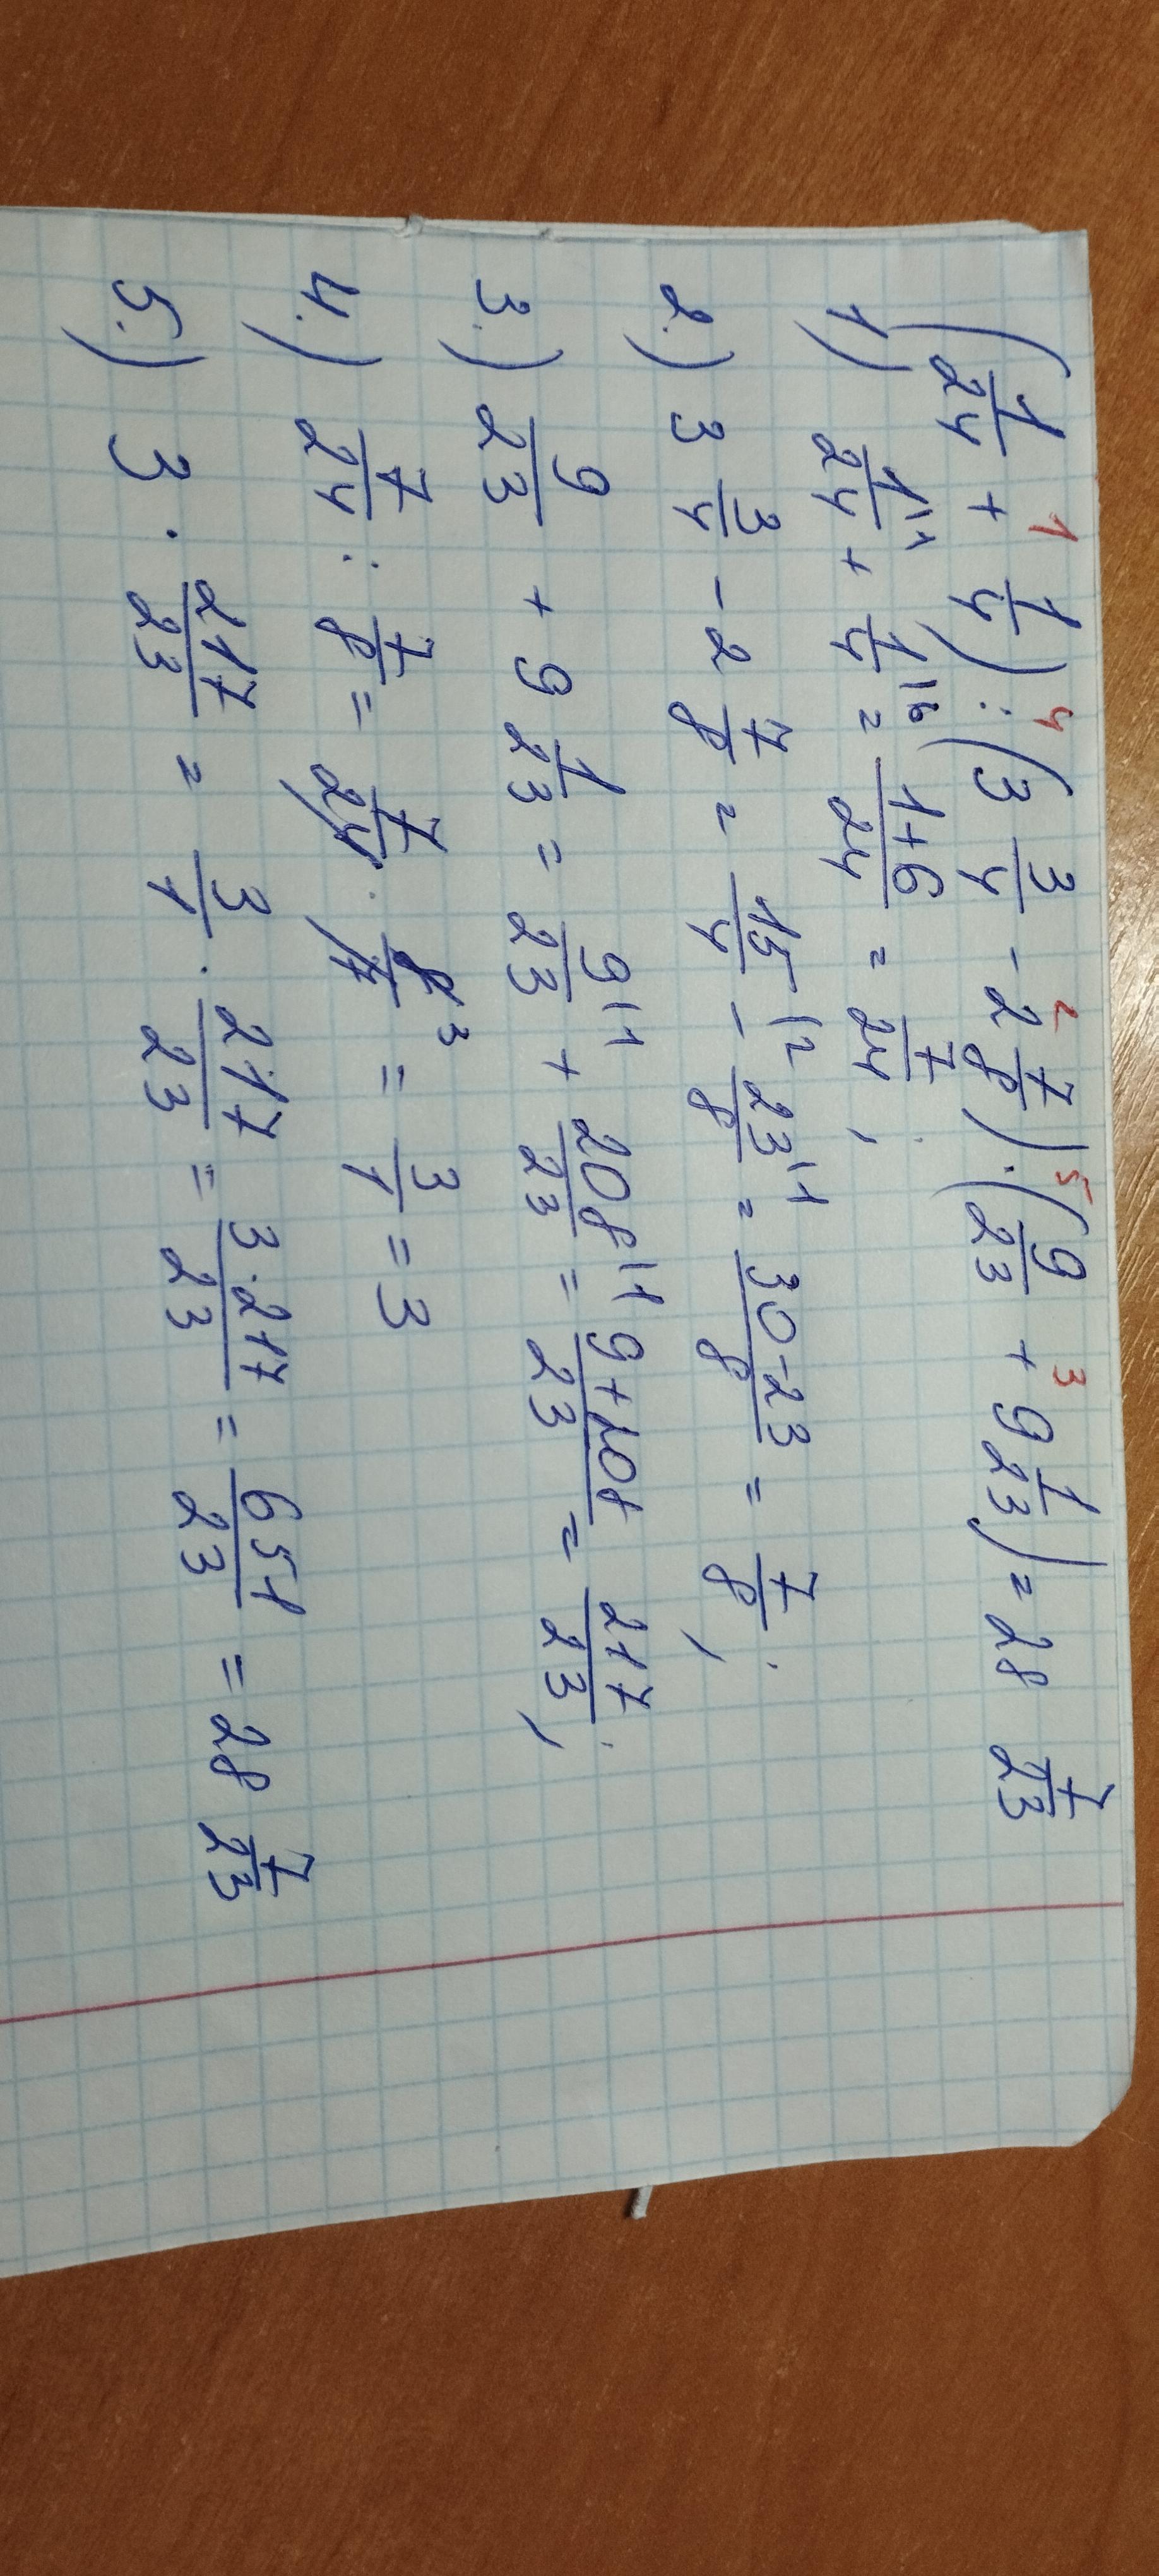 1 4 2 5 3
(1/24 + 1/4) : (3 3/4 - 2 7/8) · (9/23 + 9 1/23) = 28 7/23
1) 1/24 |1 + 1/4 |6 = 1+6/24 = 7/24;
2.) 3 3/4 - 2 7/8 = 15/4 |2 - 23/8 |1 = 30-23/8 = 7/8;
3.) 9/23 + 9 1/23 = 9/23 |1 + 208/23 |1 = 9+208/23 = 217/23;
4.) 7/24 : 7/8 = 7/24 · 8/7 3 = 3/1 = 3
5.) 3 · 217/23 = 3/1 · 217/23 = 3·217/23 = 651/23 = 28 7/23